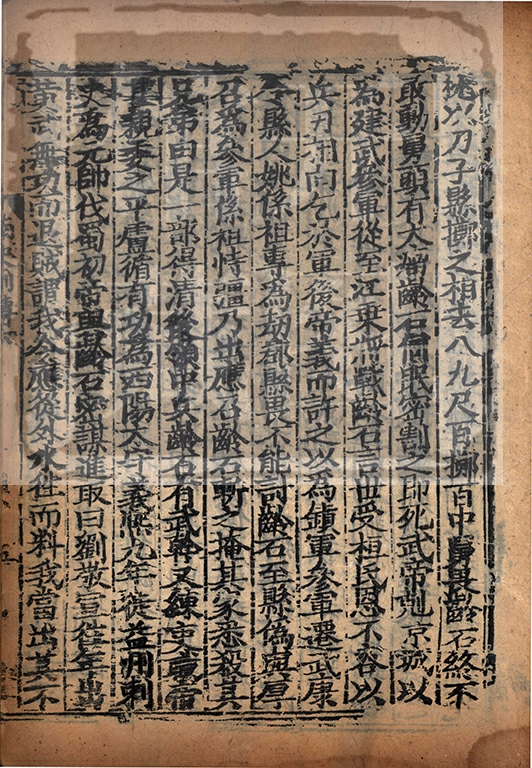 枕以刀子縣擲之相去八九尺百擲百中舅畏齡石終不
敢動舅頭有太瘤齡石伺眠密割之即死武帝剋京城以
為建武參軍從至江乗將戰齡石言世受桓氏恩不容以
兵刃相向乞於軍後帝義而許之以為鎮軍參軍遷武康
令縣人姚係祖專為劫郡縣畏不能討齡石至縣偽與厚
召為參軍係祖恃彊乃出應召齡石斬之掩其家悉殺其
兄弟由是一部得清後領中兵齡石有武幹又練吏職帝
甚親委之平盧循有功為西陽太守義熈九年徙益州刺
史為元帥伐蜀初帝與齡石密謀進取曰劉敬宣往年出
黄武無功而退賊謂我今應從外水往而料我當出其不